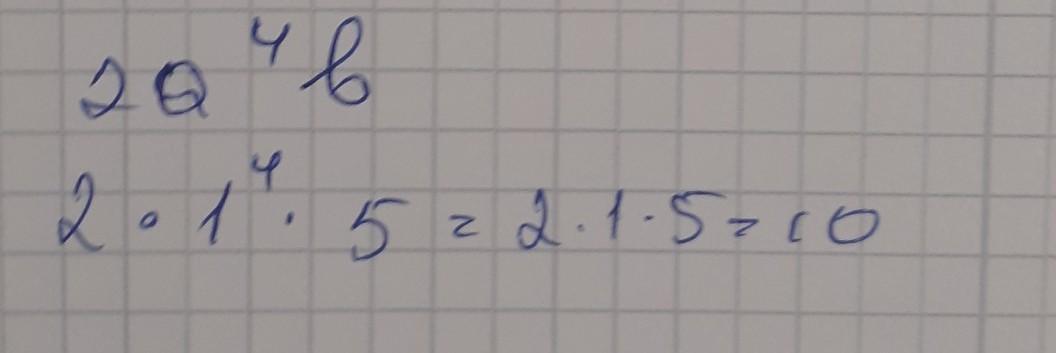 2a⁴b
2 · 1⁴ · 5 = 2 · 1 · 5 = 10